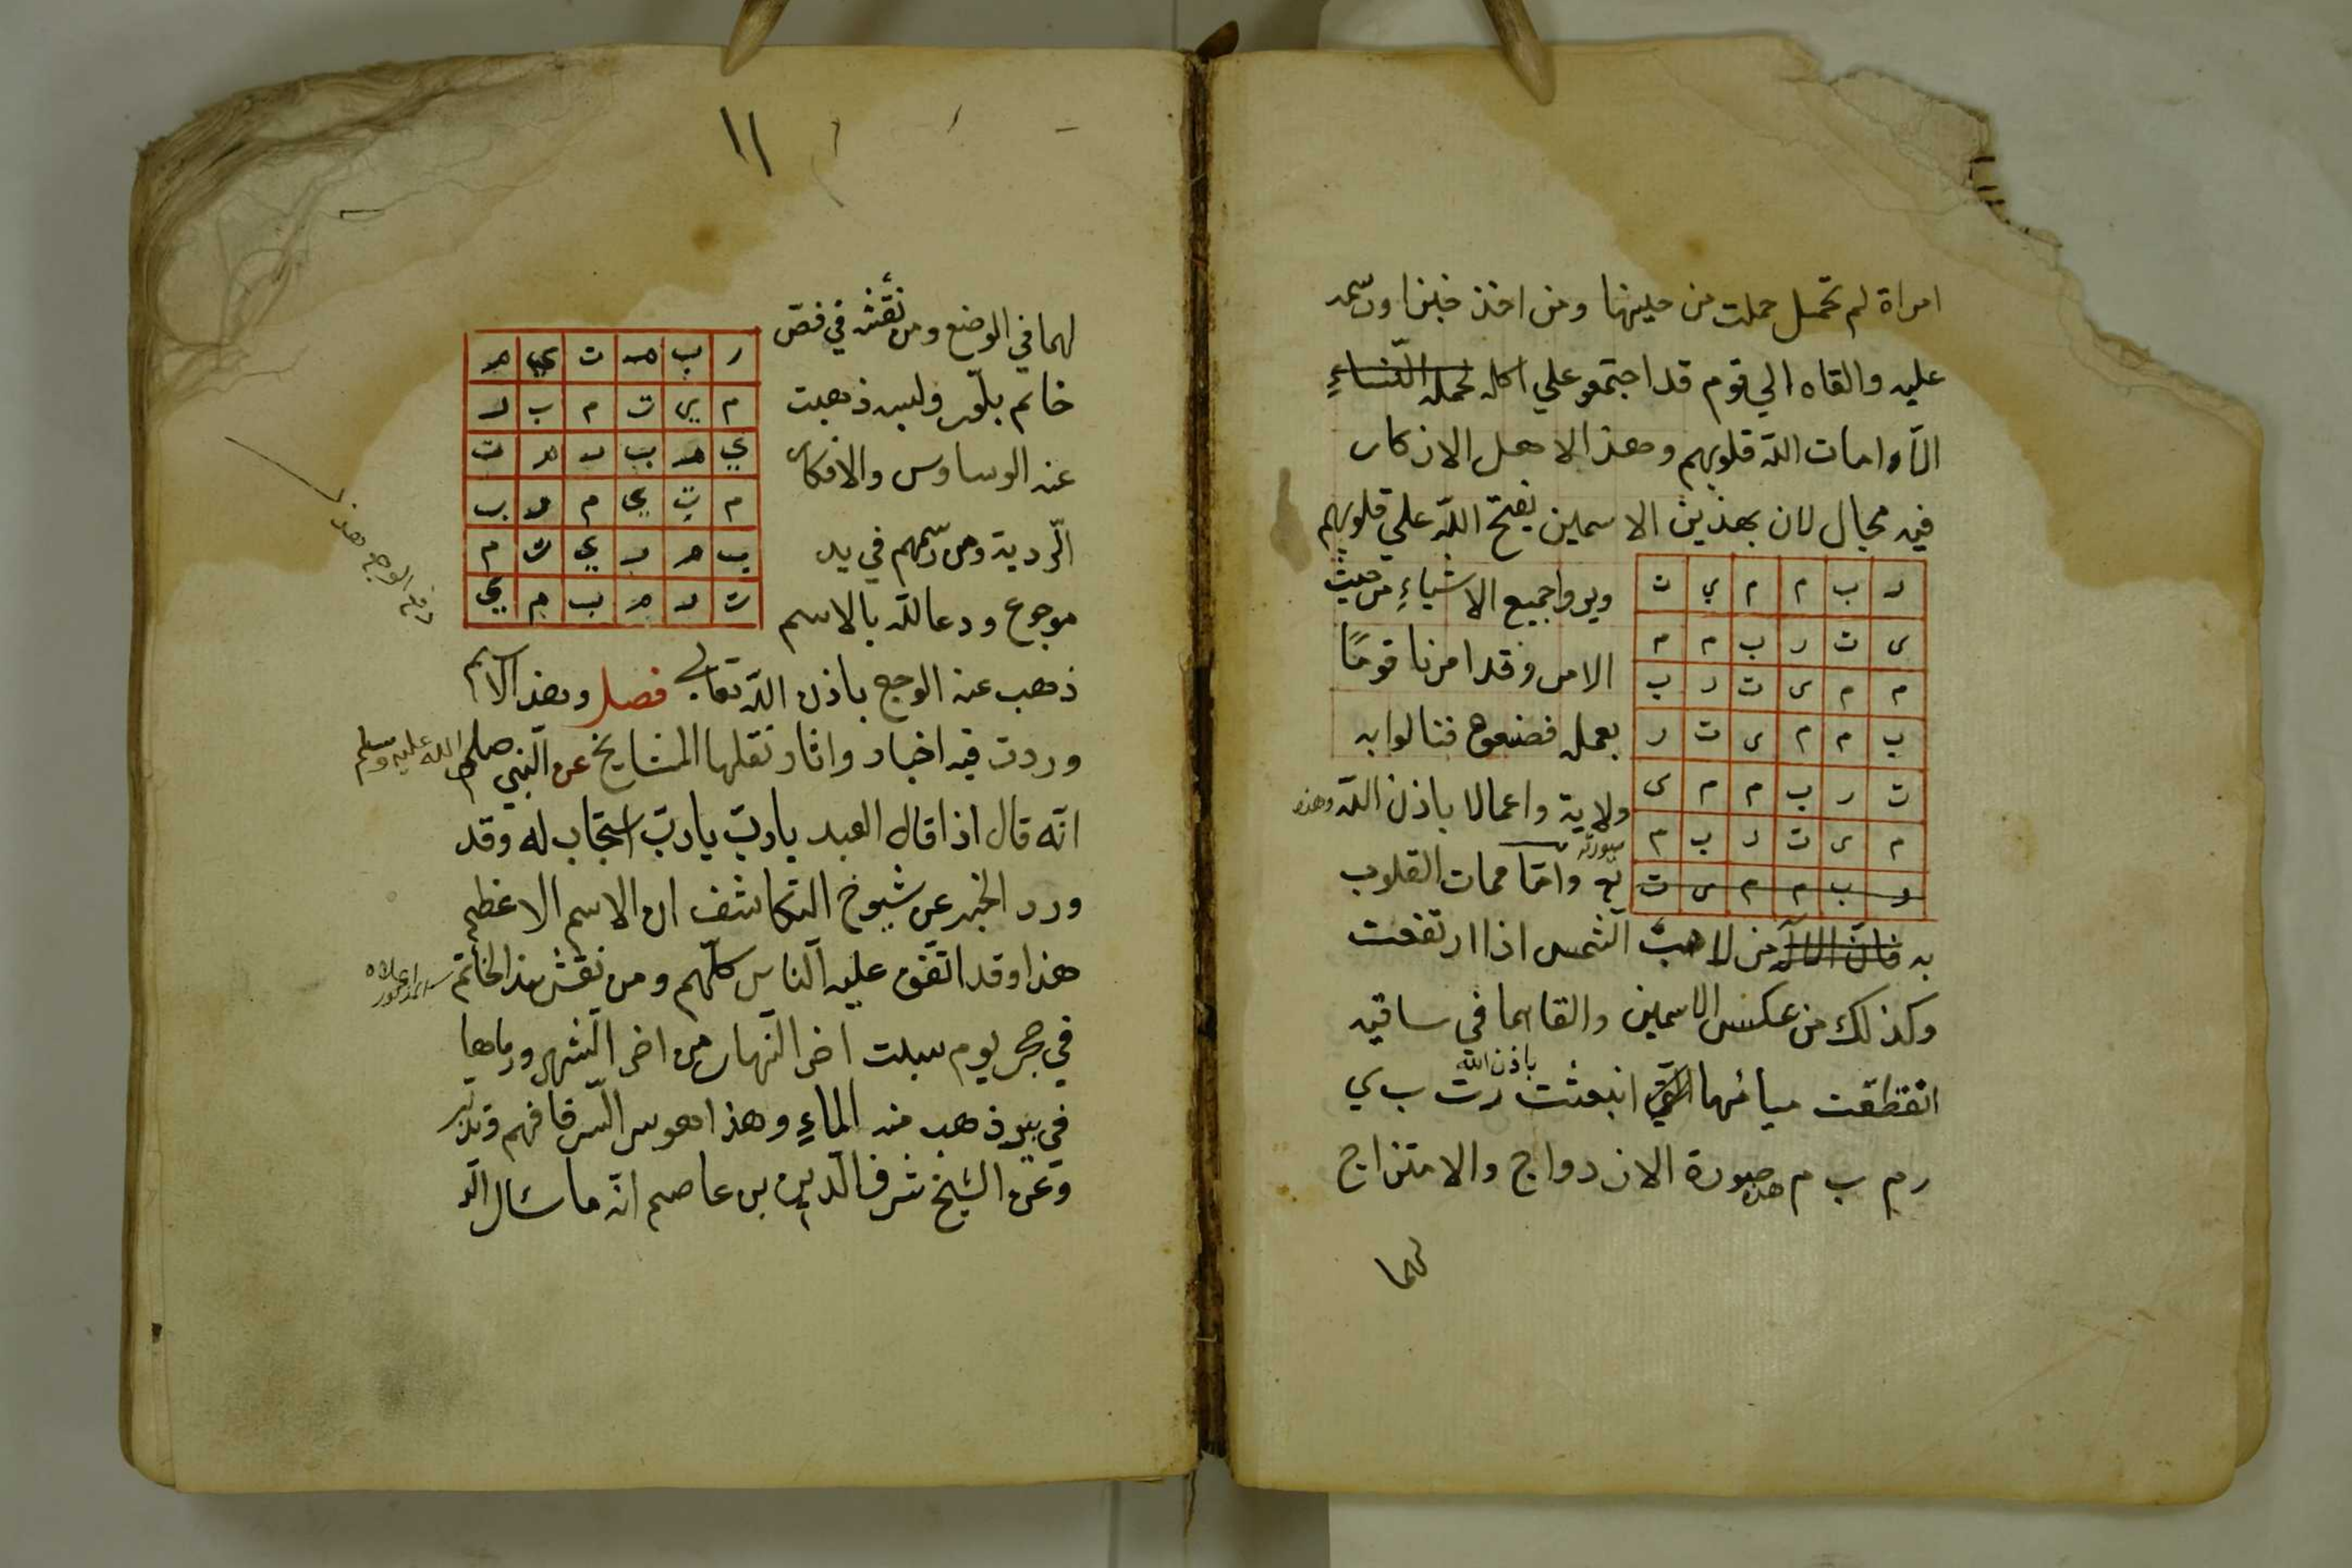 امراة لم تحمل حملت من حينها ومن اخذ خبزا ورسمه
عليه والقاه الي قوم قد اجتمعو علي اكله لحمله النساء
امات الله قلوبهم وهذا لاهل الاذكار
فيه مجال لان بهذين الاسمين يفتح الله علي قلوبهم
ر ب م م ي ت
ى ت ر ب م م
م م ى ت ر ب
ب م م ى ت ر
ت ر ب م م ى
م ى ت ر ب م
ر ب م م ى ت
ويروا جميع الاشياء من حيث
الامر وقد امرنا قومًا
بعمله فصنعوه فنالوا به
ولاية واعمالا باذن الله وهذه
صورته
واما ممات القلوب
به فان من لاهب الشمس اذا ارتفعت
وكذلك من عكس الاسمين والقاهما في ساقيه
انقطعت مياهها انبعثت باذن الله رت ب ي
رم ب م هذه صورة الازدواج والامتزاج
لهما
١١
لهما في الوضع ومن نقشه في فصّ
خاتم بلّور ولبسه ذهبت
عنه الوساوس والافكار
الرّدية ومن رسمهم في يد
موجوع ودعا لله بالاسم
ر ب م ت ي م
م ي ت م ب ر
ي م ب ر م ت
م ت ي م ر ب
ب م ر ي ت م
ت ر م ب م ي
ذهب عنه الوجع باذن الله تعالي فصل وهذا الاسم
وردت فيه اخبار واثار نقلها المشايخ عن النّبي صلي الله عليه وسلم
انّه قال اذا قال العبد ياربّ ياربّ استجاب له وقد
ورد الخبر عن شيوخ التكاشف ان الاسم الاعظم
هذا وقد اتّفق عليه النّاس كلّهم ومن نقش هذا الخاتم
في حجر يوم سبت اخر النّهار من اخر الشّهر ورماها
في بير ذهب منه الماءِ وهذا هو سر السّر فافهم وتدبّر
وعن الشيخ شرف الدّين بن عاصم انّه ما سال الله